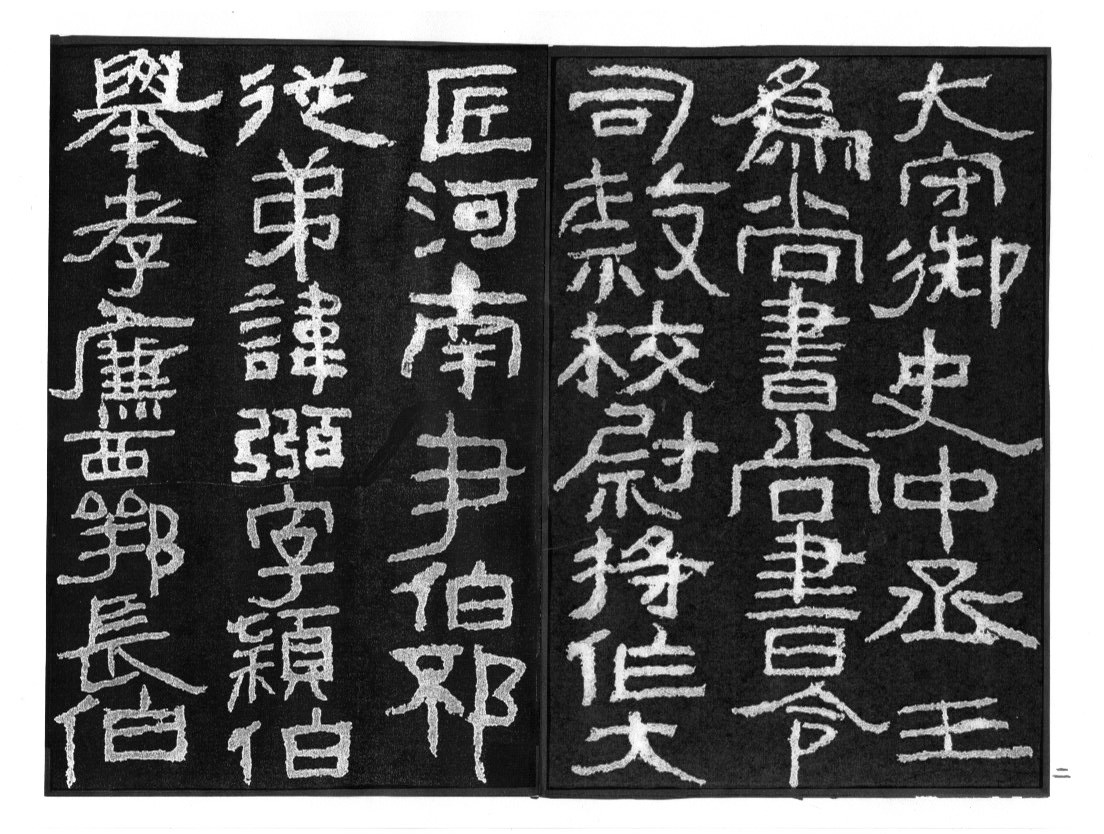 大守御史中丞三
為尚書尚書令
司隸校尉將作大
匠河南尹伯邳
從弟諱弼字穎伯
舉孝廉西鄂長伯
二